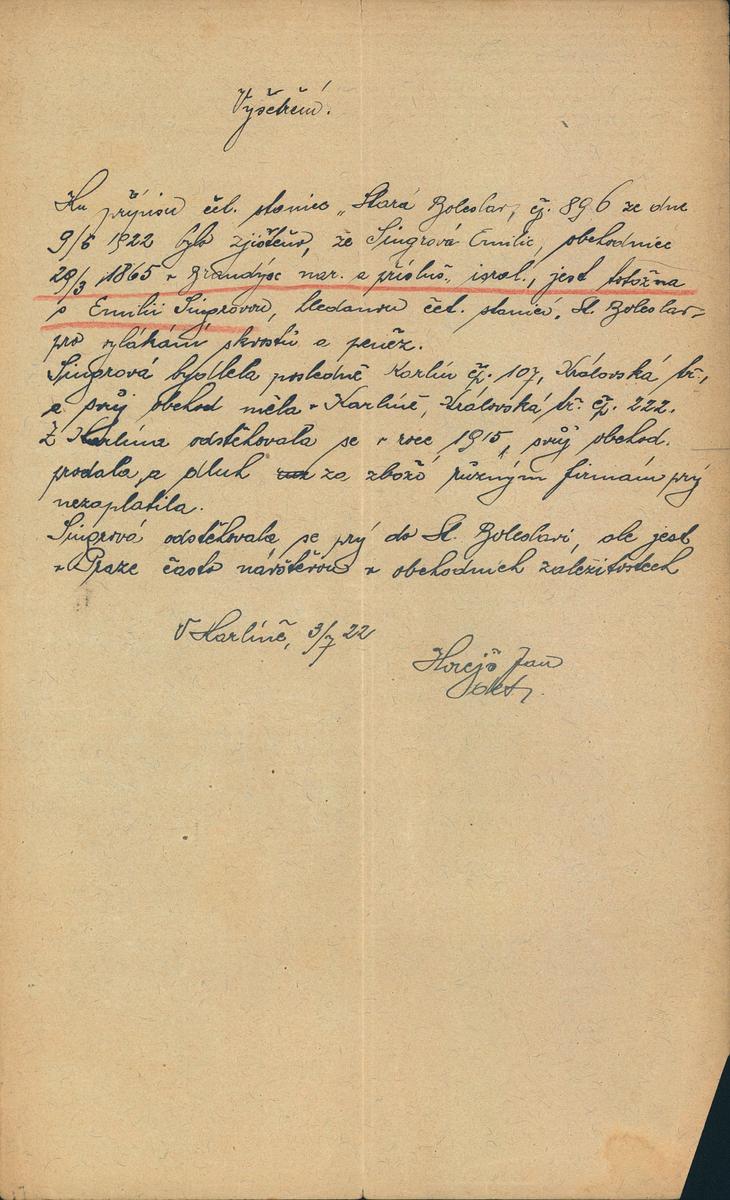 Vyšetření.
Ku přípisu čet. stanice „Stará Boleslav, čj. 896 ze dne
9/6 1922 bylo zjištěno, že Singrová Emilie, obchodnice
28/3 1865 v Brandýse nar. a přísluš., israel., jest totožna
s Emilií Singrovou, hledanou čet. stanicí, St. Boleslav-
pro vylákání skvostů a peněz.
Singrová bydlela posledně Karlín čp. 107, Královská tř.,
a svůj obchod měla v Karlíně, Královská tř. čp. 222.
Z Karlína odstěhovala se v roce 1915, svůj obchod.
prodala, a dluh za zboží různým firmám prý
nezaplatila.
Singrová odstěhovala se prý do St. Boleslavi, ale jest
v Praze často návštěvou v obchodních záležitostech
V Karlíně, 3/7 22
Horejš Jan